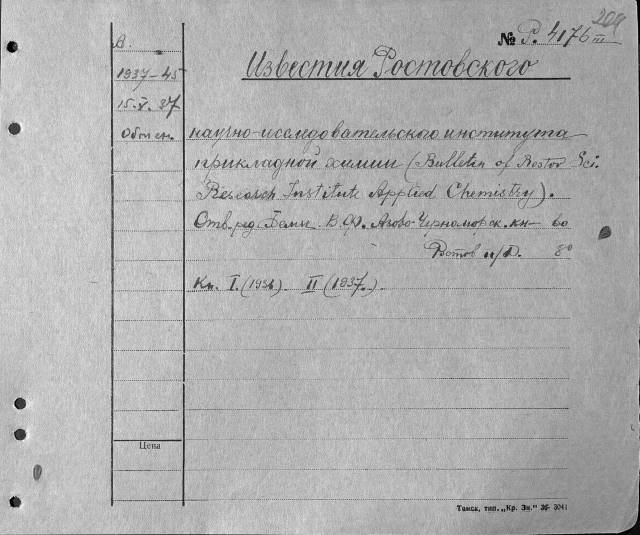 209
№ Р. 4176 III
В.
Известия Ростовского
1937-45
15.V.37
Обмен. научно-исследовательского института
прикладной химии (Bulletin of Rostov Sci.
Research Institute Applied Chemistry).
Отв. ред. Беми. В.Ф. Азово-Черноморск. кн-во
Ростов н/Д. 8°
Кн. I. (1936) II (1937.)
Цена
Томск, тип. „Кр. Зн." 3041